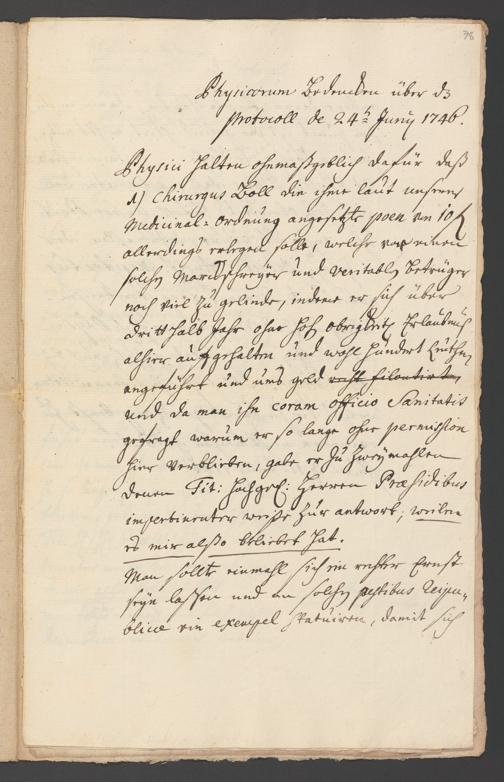 38
Physicorum Bedencken über dz
protocoll de 24ᵗ Junÿ 1746.
Physici halten ohnmaßgeblich dafür daß
1) Chirurgus Boll die ihme laut unserer
Medicinal-Ordnung angesetzte poen von 10
allerdings erlegen solle, welche vor einen
solchen Marcktschreyer und veritablen Betrüger
noch viel zu gelinde, indeme er sich über
dritthalb Jahr ohne hoh. obrigktl. Erlaubnuß
alhier auffgehalten und wohl hundert Leuthe
angeführt und ums geld
und da man ihn coram officio Sanitatis
gefragt warum er so lange ohne permission
hier verblieben, gabe er zu zweymahlen
denen Tit: Hochgel: Herren Præsidibus
impertinenter weise zur antwort, weilen
es mir also beliebet hat.
Man sollte einmahl sich ein rechter Ernst
seyn lassen und an solchen pestibus Reipu-
blicæ ein exempel statuiren, damit sich